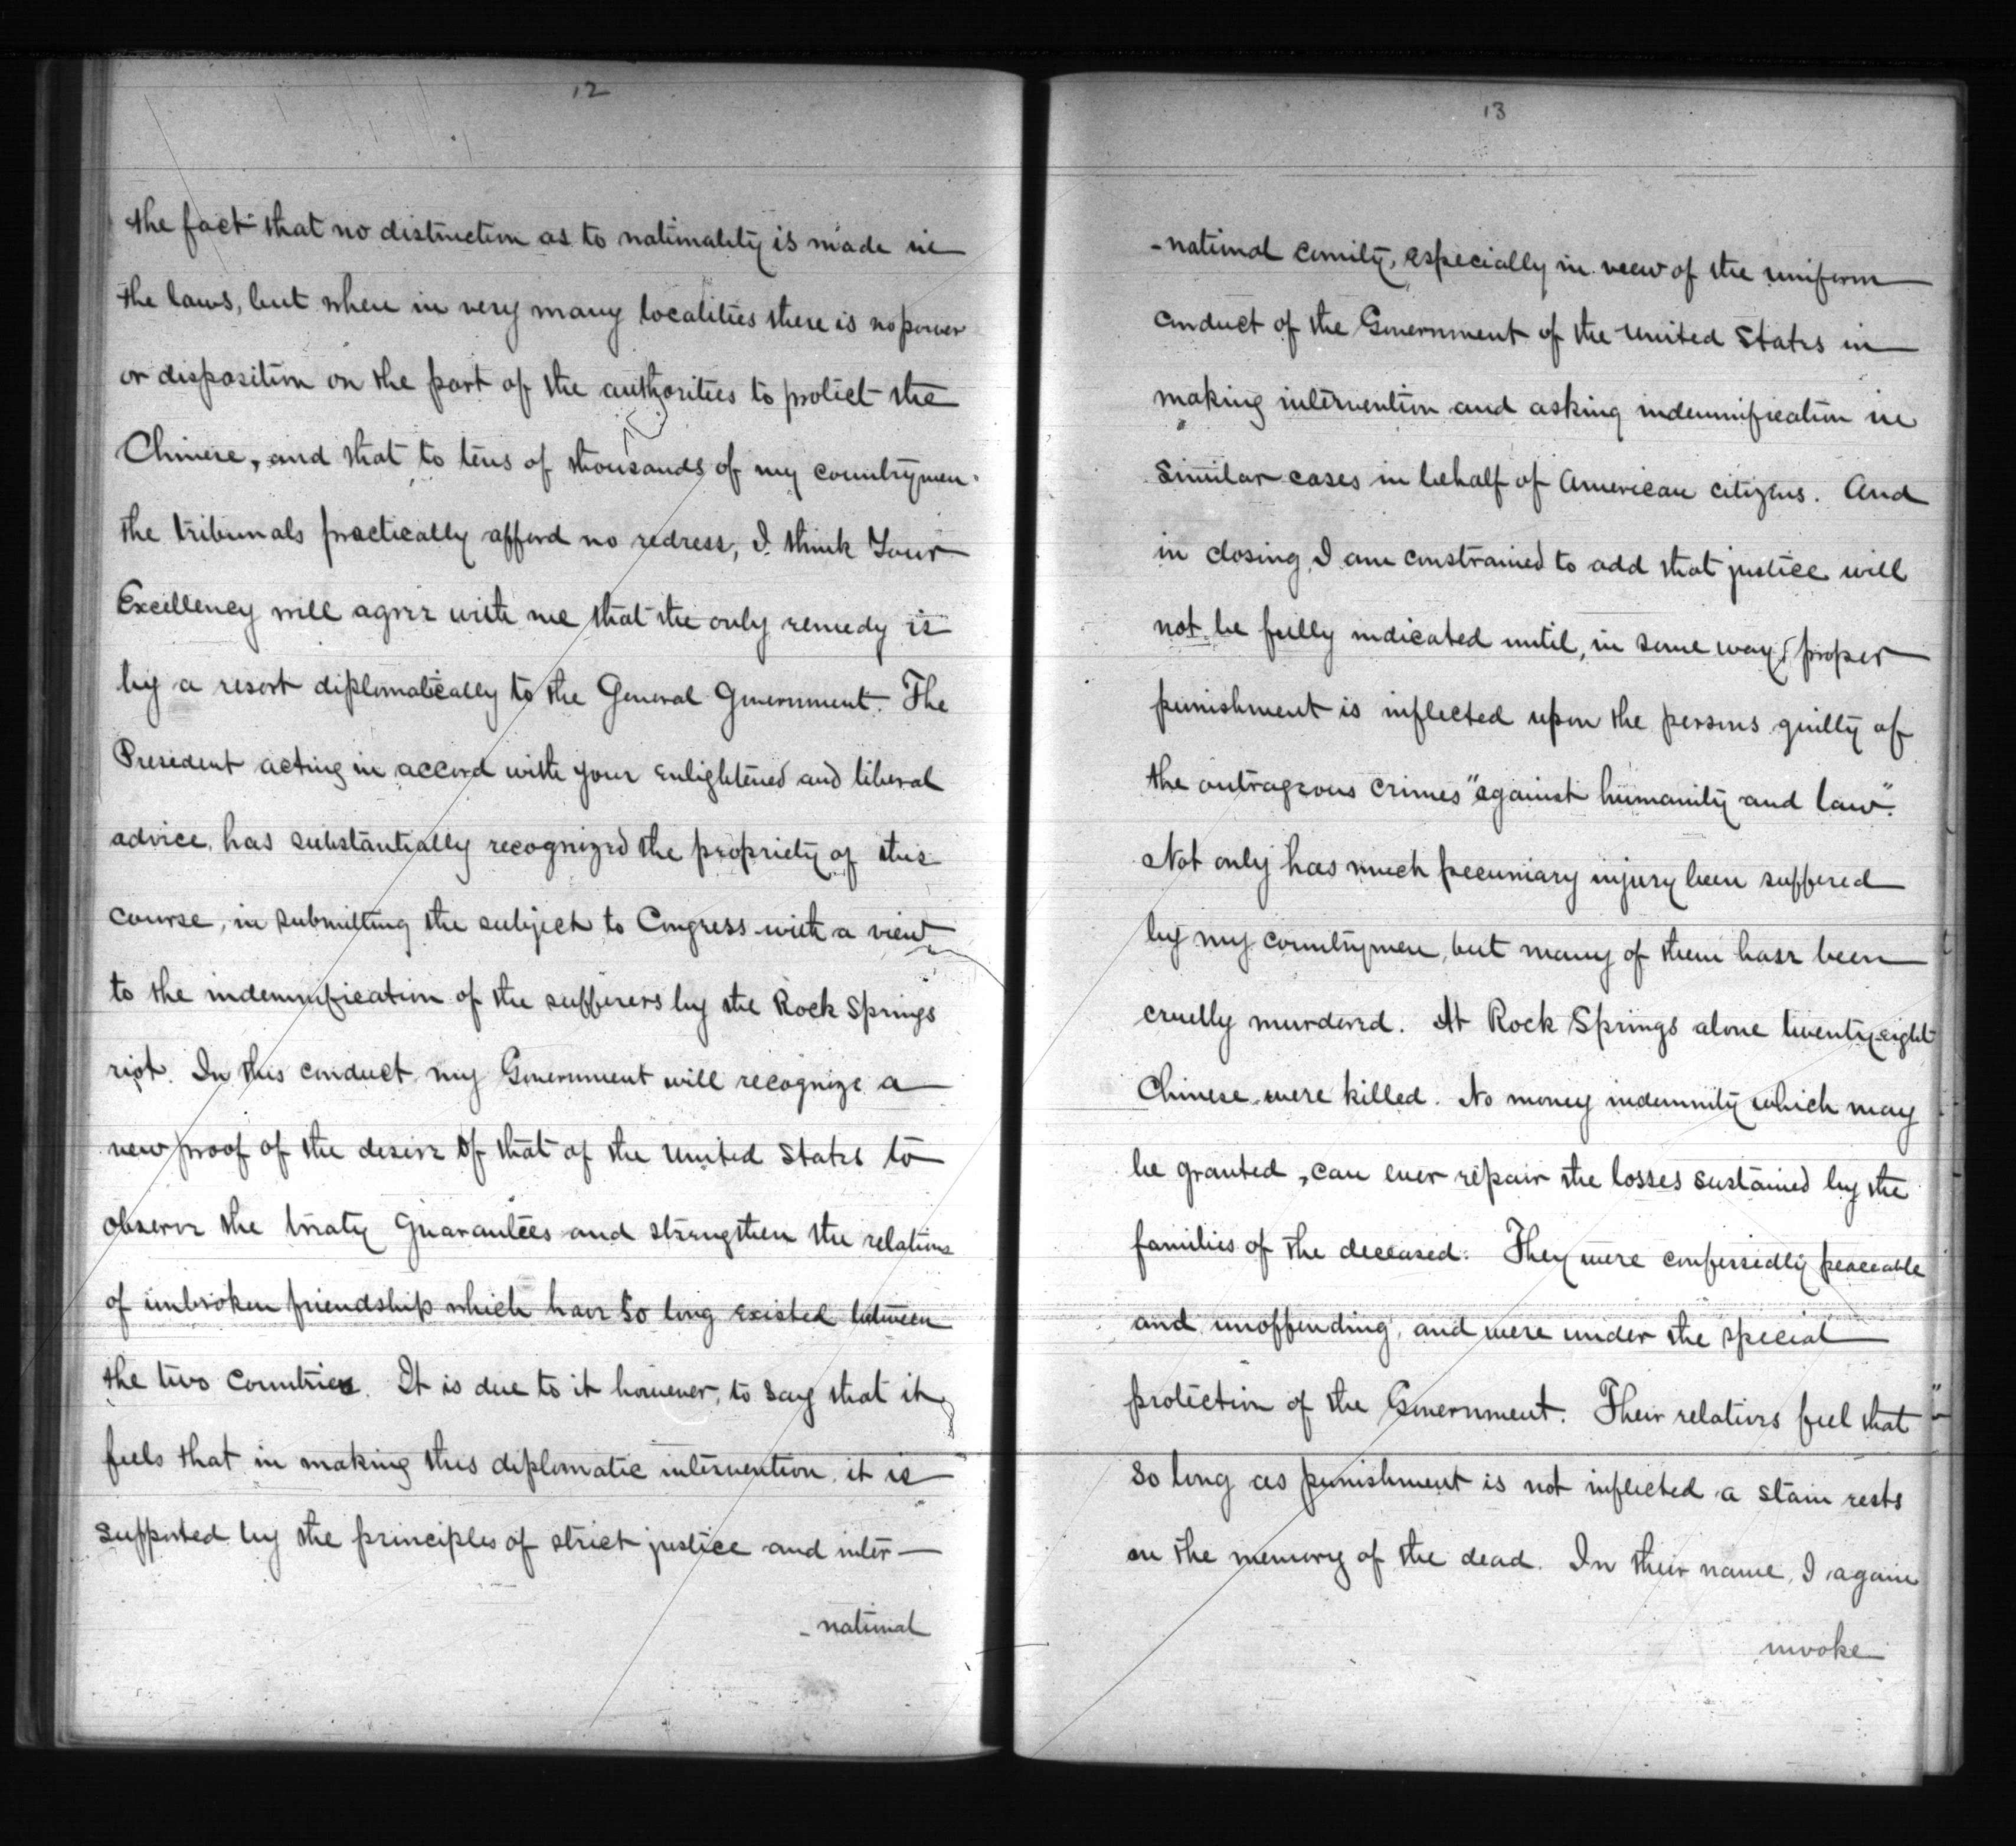 12
the fact that no distinction as to nationality is made in
the laws, but when in very many localities there is no power
or disposition on the part of the authorities to protect the
Chinese, and that to tens of thousands of my countrymen
the tribunals practically afford no redress, I think Your
Excellency will agree with me that the only remedy is
by a resort diplomatically to the General Government. The
President acting in accord with your enlightened and liberal
advice, has substantially recognized the propriety of this
course, in submitting the subject to Congress with a view
to the indemnification of the sufferers by the Rock Springs
riot. In this conduct my Government will recognize a
new proof of the desire of that of the United States to
observe the treaty guarantees and strengthen the relations
of unbroken friendship which have so long existed between
the two Countries. It is due to it however, to say that it
feels that in making this diplomatic intervention, it is
supported by the principles of strict justice and inter-
-national
13
-national comity, especially in view of the uniform
conduct of the Government of the United States in
making intervention and asking indemnification in
similar cases in behalf of American citizens. And
in closing I am constrained to add that justice will
not be fully vindicated until, in some way, proper
punishment is inflicted upon the persons guilty of
the outrageous crimes "against humanity and law".
Not only has much pecuniary injury been suffered
by my countrymen, but many of them have been
cruelly murdered. At Rock Springs alone twenty-eight
Chinese were killed. No money indemnity which may
be granted, can ever repair the losses sustained by the
families of the deceased. They were confessedly peaceable
and unoffending, and were under the special
protection of the Government. Their relatives feel that
so long as punishment is not inflicted a stain rests
on the memory of the dead. In their name, I again
invoke